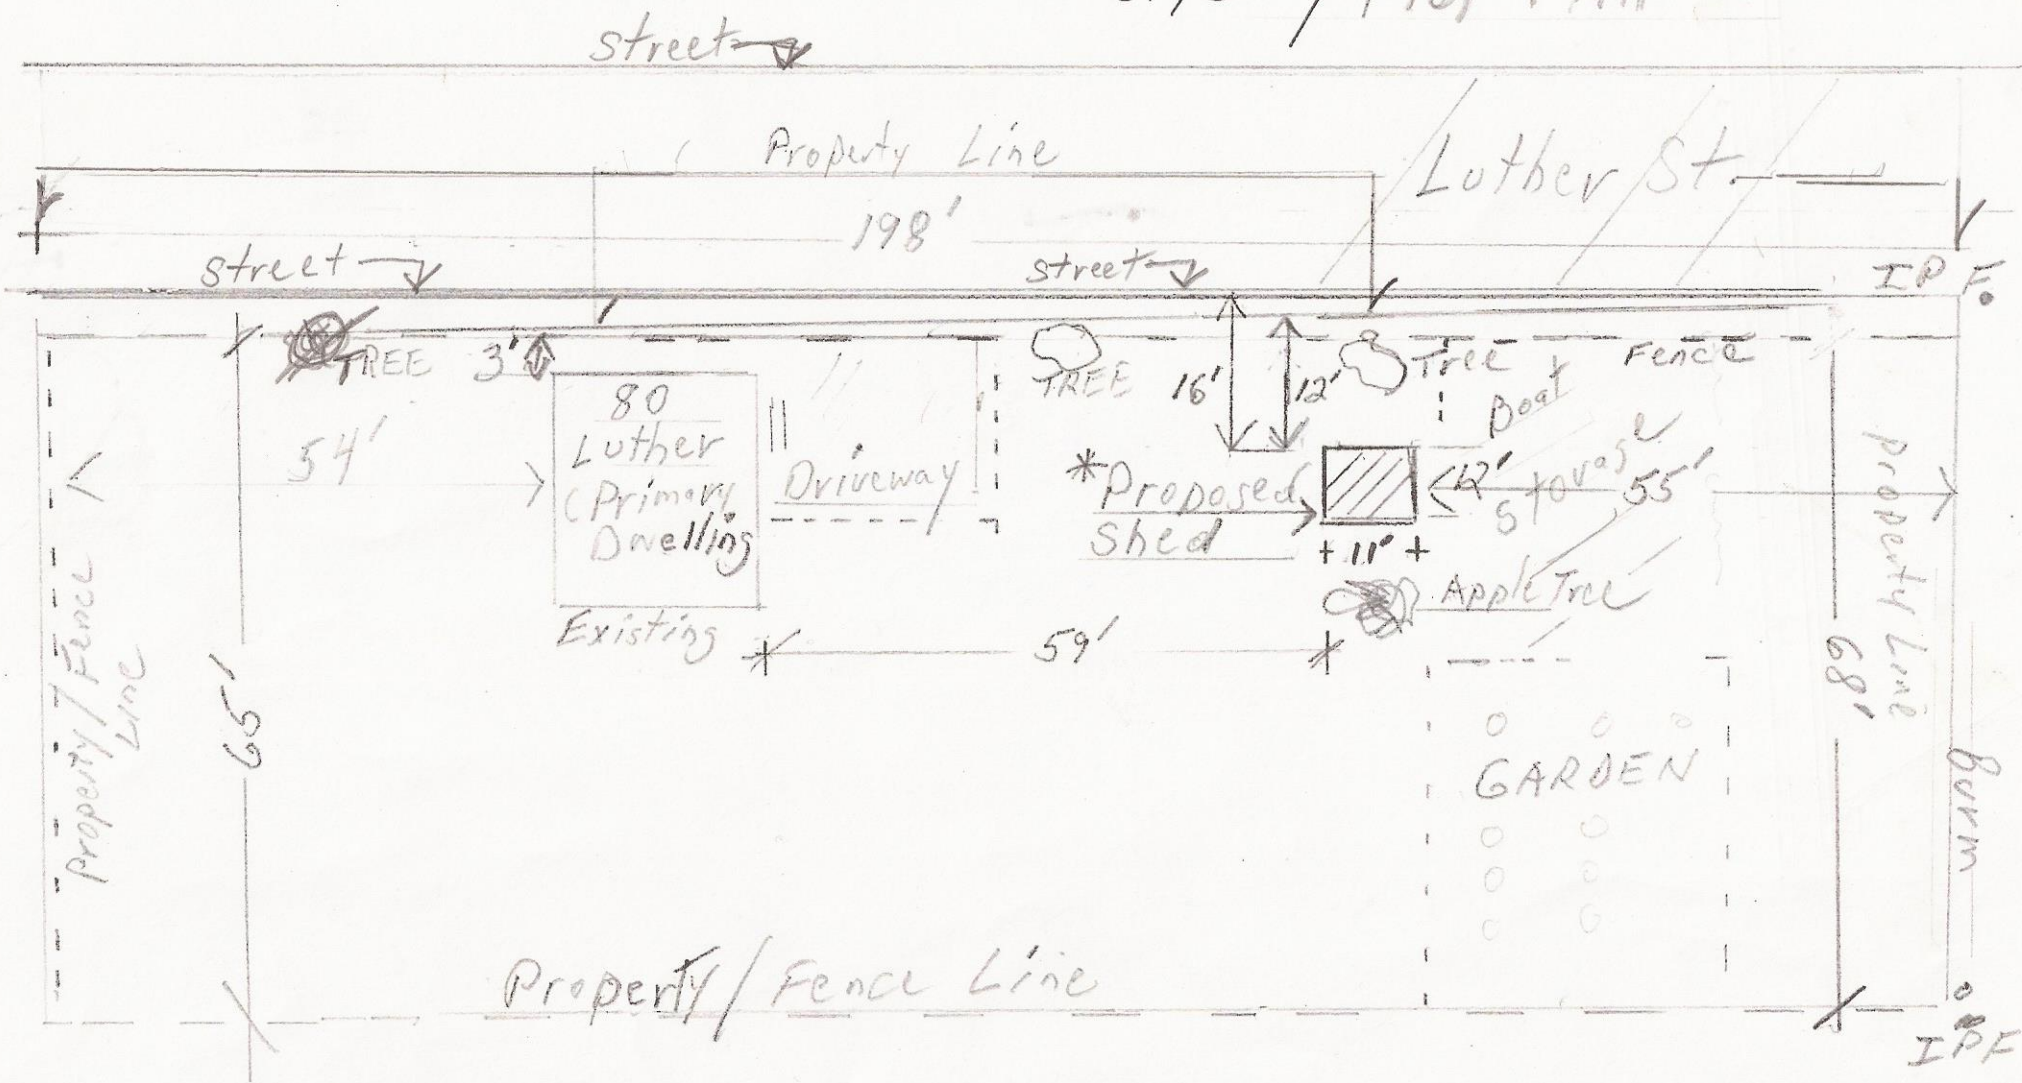 street
Property Line
Luther St.
198'
street
street
I P F.
TREE
3'
TREE
16'
12'
Tree
Fence
Boat
Storage
80
Luther
(Primary
Dwelling
Existing
Driveway
54'
*Proposed
Shed
12'
55'
11'
Apple Tree
59'
65'
68'
Property/Fence
Line
property Line
Burm
GARDEN
Property/Fence Line
IPF